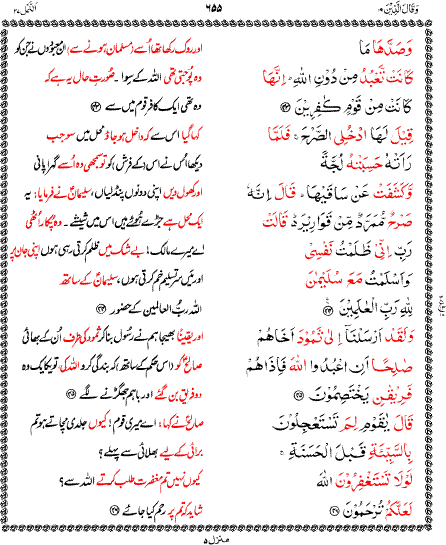 وَقَالَ الَّذِيْنَ ۱۹
۶۵۵
النَّمل ۲۷
وَصَدَّهَا مَا
كَانَتْ تَّعْبُدُ مِنْ دُوْنِ اللّٰهِ ؕ اِنَّهَا
كَانَتْ مِنْ قَوْمٍ كٰفِرِيْنَ ﴿۴۳﴾
قِيْلَ لَهَا ادْخُلِى الصَّرْحَ ۚ فَلَمَّا
رَاَتْهُ حَسِبَتْهُ لُجَّةً
وَّكَشَفَتْ عَنْ سَاقَيْهَا ؕ قَالَ اِنَّهٗ
صَرْحٌ مُّمَرَّدٌ مِّنْ قَوَارِيْرَ ؕ قَالَتْ
رَبِّ اِنِّىْ ظَلَمْتُ نَفْسِىْ
وَاَسْلَمْتُ مَعَ سُلَيْمٰنَ
لِلّٰهِ رَبِّ الْعٰلَمِيْنَ ﴿۴۴﴾
وَلَقَدْ اَرْسَلْنَاۤ اِلٰى ثَمُوْدَ اَخَاهُمْ
صٰلِحًا اَنِ اعْبُدُوا اللّٰهَ فَاِذَا هُمْ
فَرِيْقٰنِ يَخْتَصِمُوْنَ ﴿۴۵﴾
قَالَ يٰقَوْمِ لِمَ تَسْتَعْجِلُوْنَ
بِالسَّيِّئَةِ قَبْلَ الْحَسَنَةِ ۚ
لَوْلَا تَسْتَغْفِرُوْنَ اللّٰهَ
لَعَلَّكُمْ تُرْحَمُوْنَ ﴿۴۶﴾
اور روک رکھا تھا اُسے (مسلمان ہونے سے) ان معبودوں نے جن کو
وہ پُوجتی تھی اللہ کے سوا۔ صُورتِ حال یہ ہے کہ
وہ تھی ایک کافر قوم میں سے ﴿۴۳﴾
کہا گیا اس سے کہ داخل ہو جاؤ محل میں سو جب
دیکھا اُس نے اس (کے فرش) کو تو سمجھی وہ اُسے گہرا پانی
اور کھول دیں اپنی دونوں پنڈلیاں، سلیمانؑ نے فرمایا: یہ
ایک محل ہے جڑے ہُوئے ہیں اس میں شیشے۔ وہ پُکار اُٹھی
اے میرے مالک! بے شک میں ظلم کرتی رہی ہوں اپنی جان پر
اور میں سرِ تسلیم خم کرتی ہوں، سلیمانؑ کے ساتھ
اللہ ربُّ العالمین کے حضور ﴿۴۴﴾
اور یقیناً بھیجا ہم نے رسُول بنا کر ثمود کی طرف اُن کے بھائی
صالحؑ کو (اس حکم کے ساتھ) کہ بندگی کرو اللہ کی تو یکایک وہ
دو فریق بن گئے اور باہم جھگڑنے لگے ﴿۴۵﴾
صالحؑ نے کہا: اے میری قوم! کیوں جلدی مچاتے ہو تم
برائی کے لیے بھلائی سے پہلے؟
کیوں نہیں تم مغفرت طلب کرتے اللہ سے؟
شاید کہ تم پر رحم کیا جائے ﴿۴۶﴾
منزل ۵